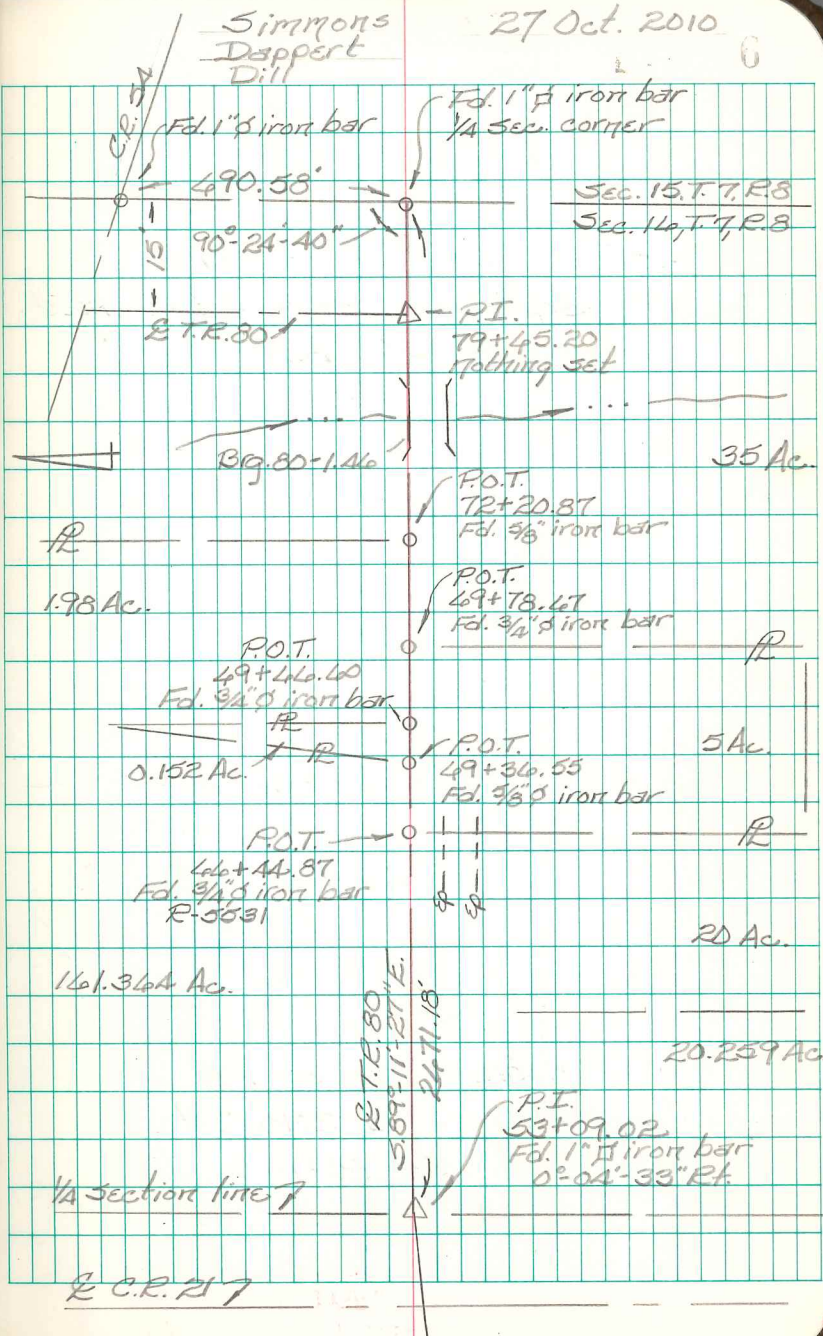 Simmons
Dappert
Dill
27 Oct. 2010
6
C.R. 54
Fd. 1"ø iron bar
Fd. 1"⌑ iron bar
1/4 Sec. corner
690.58'
90°-24'-40"
15'
Sec. 15, T.7, R.8
Sec. 16, T.7, R.8
℄ T.R. 80
P.I.
79+65.20
nothing set
Brg. 80-1.46
35 Ac.
P.O.T.
72+20.87
Fd. 5/8" iron bar
PL
1.98 Ac.
P.O.T.
69+78.67
Fd. 3/4"ø iron bar
PL
P.O.T.
69+66.60
Fd. 3/4"ø iron bar
PL
PL
0.152 Ac.
P.O.T.
69+36.55
Fd. 5/8"ø iron bar
5 Ac.
PL
P.O.T.
66+44.87
Fd. 3/4"ø iron bar
R-5531
ep
ep
20 Ac.
161.364 Ac.
℄ T.R. 80
S.89°-11'-27"E.
2671.18'
20.259 Ac
P.I.
53+09.02
Fd. 1"⌑ iron bar
0°-04'-33" Rt.
1/4 section line
℄ C.R. 21